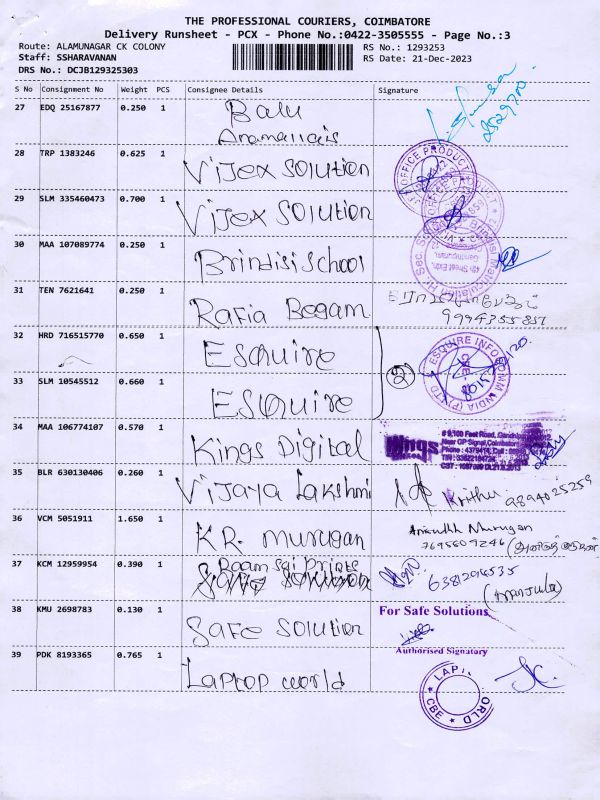 THE PROFESSIONAL COURIERS, COIMBATORE
Delivery Runsheet - PCX - Phone No.:0422-3505555 - Page No.:3
Route: ALAMUNAGAR CK COLONY
RS No.: 1293253
Staff: SSHARAVANAN
RS Date: 21-Dec-2023
DRS No.: DCJB129325303
S No Consignment No Weight PCS Consignee Details Signature
27 EDQ 25167877 0.250 1 Balu
28 TRP 1383246 0.625 1 Vijex Solution
29 SLM 335460473 0.700 1 Vijex Solution
30 MAA 107089774 0.250 1 Brindisi School
31 TEN 7621641 0.250 1 Rafia Begam
9994355851
32 HRD 716515770 0.650 1 Esquire
2
33 SLM 10545512 0.660 1 Esquire
34 MAA 106774107 0.570 1 Kings Digital
35 BLR 630130406 0.260 1 Vijaya Lakshmi Krithu 9894025259
36 VCM 5051911 1.650 1 K.R. Murugan Anirudh Murugan
7695609246
37 KCM 12959954 0.390 1 Raam Sai Prints
(Manjula)
38 KMU 2698783 0.130 1 Safe Solution
For Safe Solutions
Authorised Signatory
39 PDK 8193365 0.765 1 Laptop World
CBE